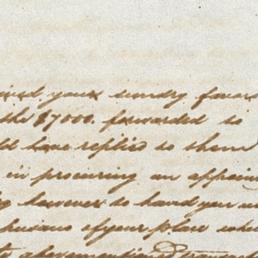 your sundry favors
the $7000. forwarded to
have replied to them
in procuring an appoin
however to hand you
of your place whi